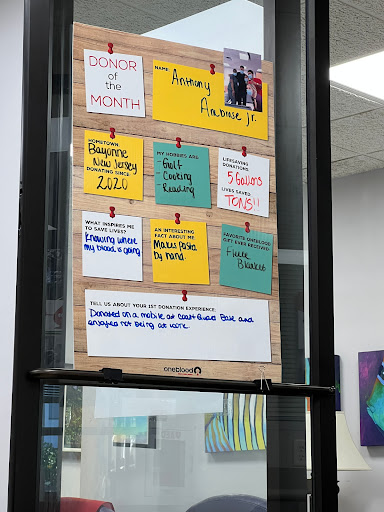 DONOR
of the
MONTH
NAME:
Anthony
Ambrose jr.
HOMETOWN
Bayonne
New Jersey
DONATING SINCE
2020
MY HOBBIES ARE
- Golf
- Cooking
- Reading
LIFESAVING
DONATIONS:
5 Gallons
LIVES SAVED:
TONS!!
WHAT INSPIRES ME
TO SAVE LIVES?
Knowing where
my blood is going
AN INTERESTING
FACT ABOUT ME
Makes pasta
by hand.
FAVORITE ONEBLOOD
GIFT EVER RECEIVED:
Fleece
Blanket
TELL US ABOUT YOUR 1ST DONATION EXPERIENCE:
Donated on a mobile at Coast Guard Base and
enjoyed not being at work.
oneblood